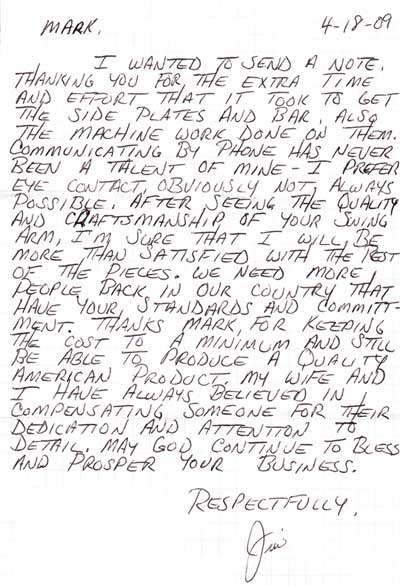 MARK, 4-18-09
I WANTED TO SEND A NOTE,
THANKING YOU FOR THE EXTRA TIME
AND EFFORT THAT IT TOOK TO GET
THE SIDE PLATES AND BAR, ALSO
THE MACHINE WORK DONE ON THEM.
COMMUNICATING BY PHONE HAS NEVER
BEEN A TALENT OF MINE - I PREFER
EYE CONTACT, OBVIOUSLY NOT ALWAYS
POSSIBLE. AFTER SEEING THE QUALITY
AND CRAFTSMANSHIP OF YOUR SWING
ARM, I'M SURE THAT I WILL BE
MORE THAN SATISFIED WITH THE REST
OF THE PIECES. WE NEED MORE
PEOPLE BACK IN OUR COUNTRY THAT
HAVE YOUR STANDARDS AND COMMITT-
MENT. THANKS MARK, FOR KEEPING
THE COST TO A MINIMUM AND STILL
BE ABLE TO PRODUCE A QUALITY
AMERICAN PRODUCT. MY WIFE AND
I HAVE ALWAYS BELIEVED IN
COMPENSATING SOMEONE FOR THEIR
DEDICATION AND ATTENTION TO
DETAIL. MAY GOD CONTINUE TO BLESS
AND PROSPER YOUR BUSINESS.
RESPECTFULLY,
Jim